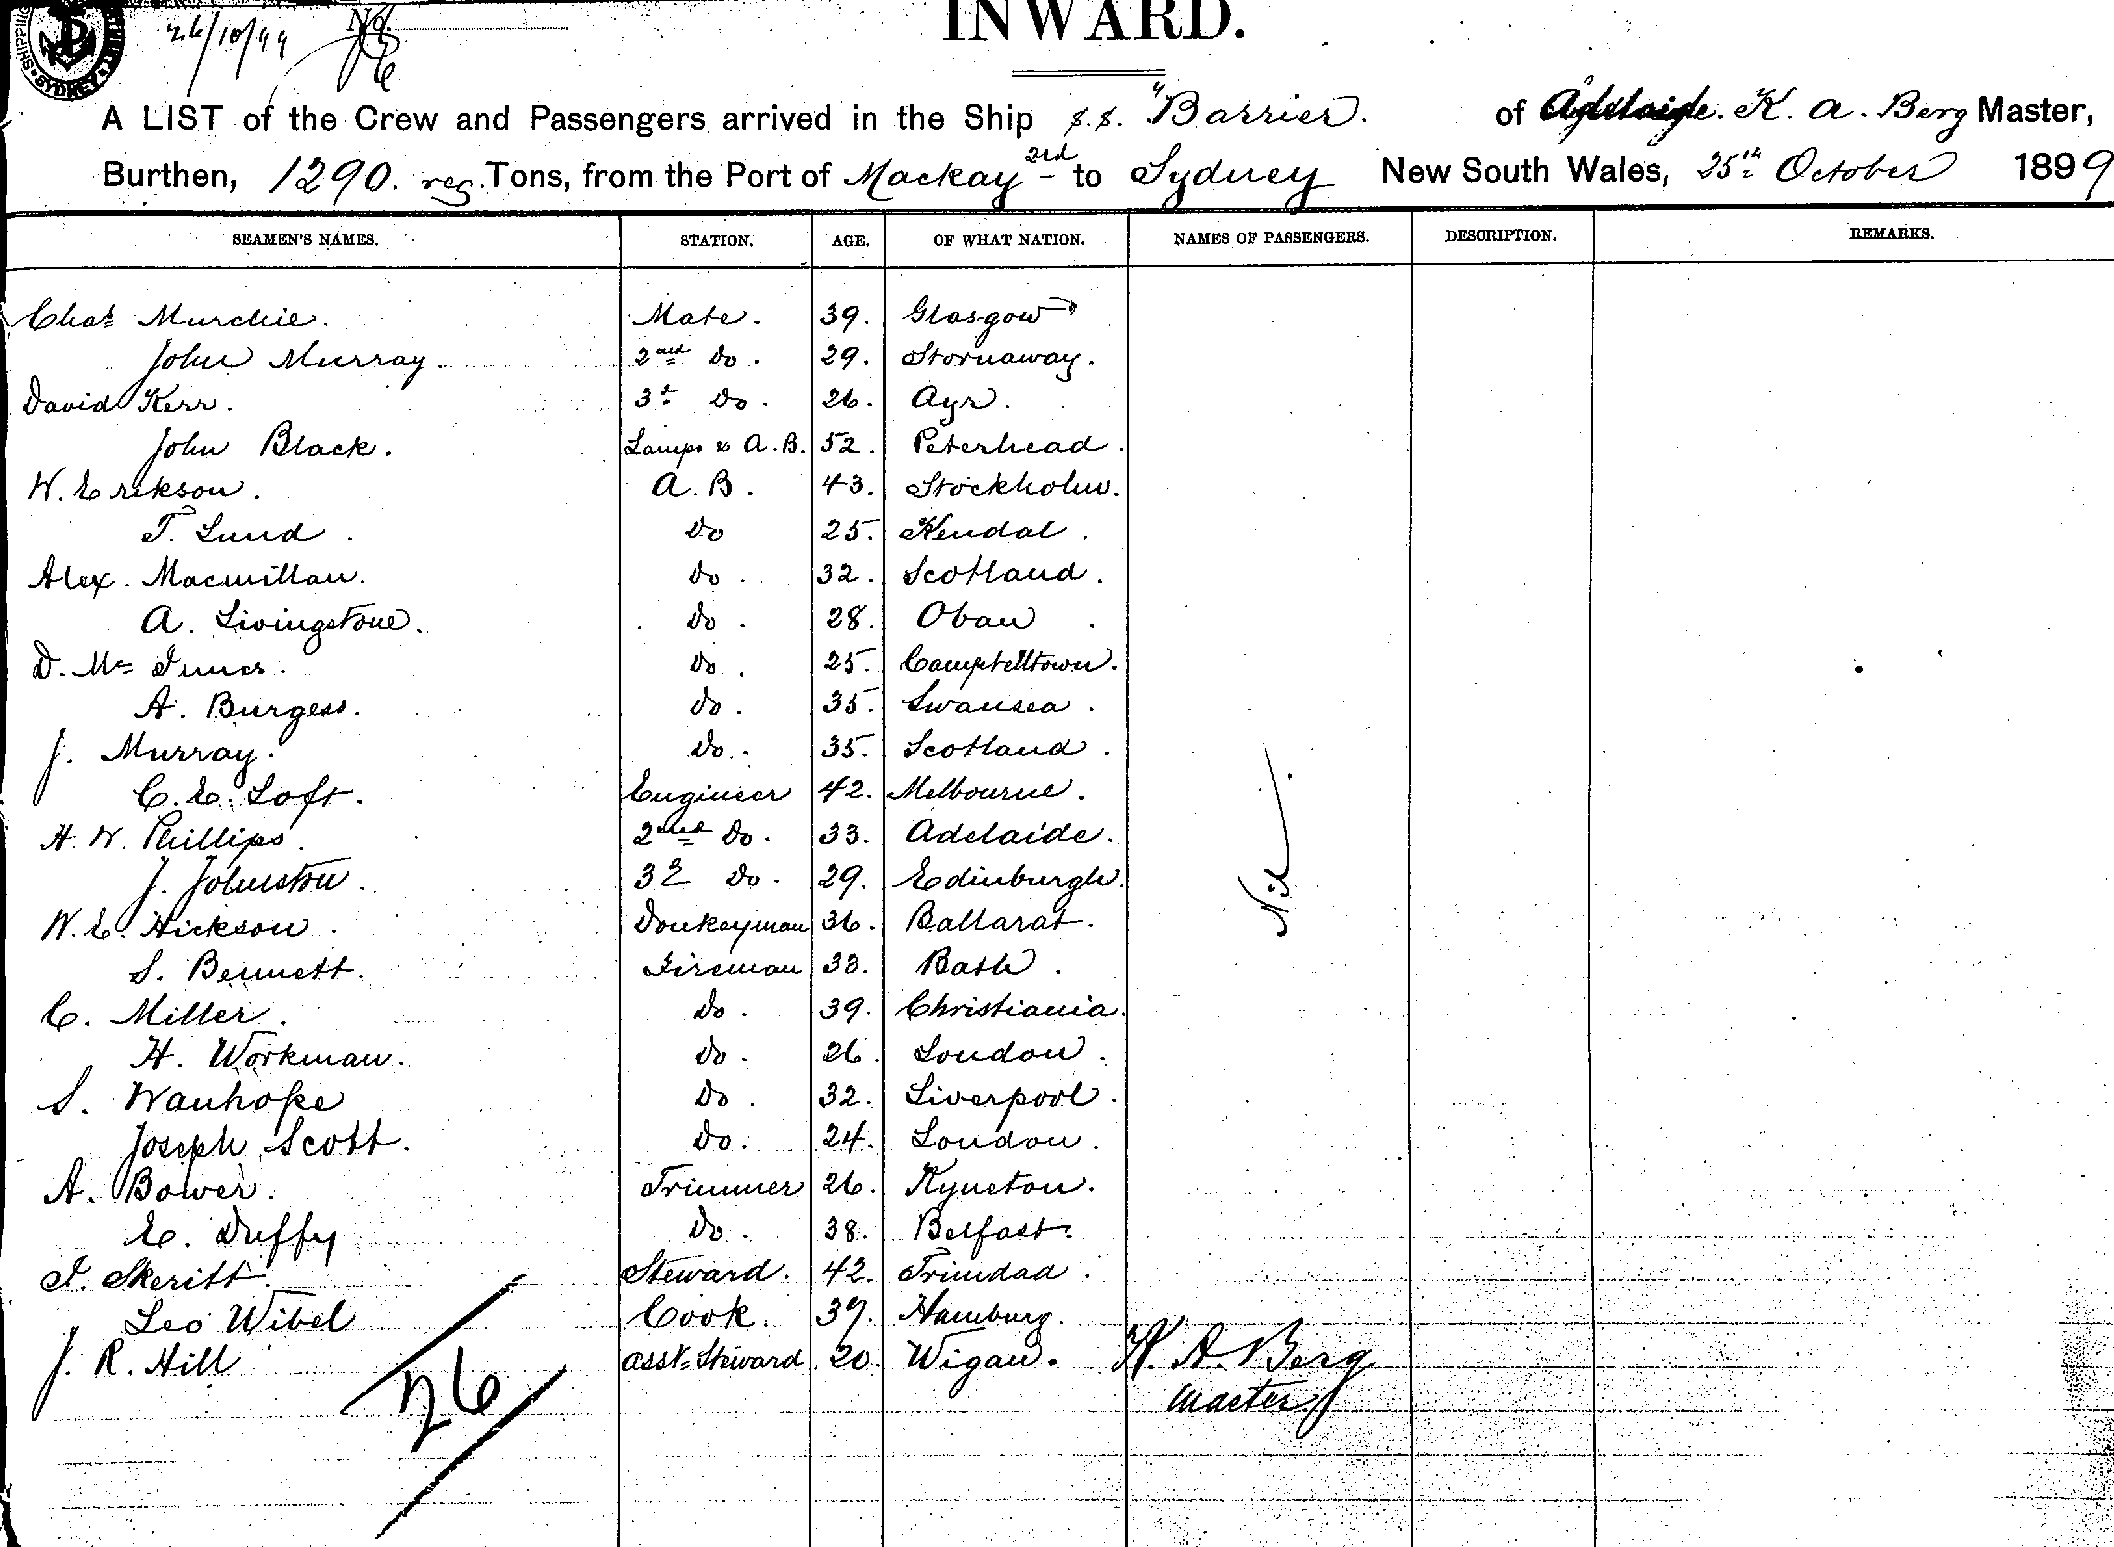 26/10/99
INWARD.
A LIST of the Crew and Passengers arrived in the Ship s.s. "Barrier. of Adelaide. K. A. Berg Master,
Burthen, 1290. reg. Tons, from the Port of Mackay to Sydney New South Wales, 25th October 1899
SEAMEN'S NAMES. STATION. AGE. OF WHAT NATION. NAMES OF PASSENGERS. DESCRIPTION. REMARKS.
Chas Murchie. Mate. 39. Glasgow
John Murray. 2nd Do. 29. Stornaway.
David Kerr. 3d Do. 26. Ayr.
John Black. Lamps & A.B. 52. Peterhead.
W. Erekson. A.B. 43. Stockholm.
T. Lund. Do 25. Kendal.
Alex. Macmillan. Do. 32. Scotland.
A. Livingstone. Do. 28. Oban.
D. Mc Innes. Do. 25. Campbelltown.
A. Burgess. Do. 35. Swansea.
J. Murray. Do. 35. Scotland.
C. E. Loft. Engineer 42. Melbourne.
H. W. Phillips. 2nd Do. 33. Adelaide.
J. Johnston. 3d Do. 29. Edinburgh.
W. E. Hickson. Donkeyman 36. Ballarat.
S. Bennett. Fireman 33. Bath.
C. Miller. Do. 39. Christiania.
H. Workman. Do. 26. London.
S. Wauhope Do. 32. Liverpool.
Joseph Scott. Do. 24. London.
A. Bower. Trimmer 26. Kyneton.
E. Duffy Do. 38. Belfast.
T. Skeritt. Steward. 42. Trinidad.
Leo Wibel Cook. 37. Hamburg.
J. R. Hill asst. Steward 20. Wigan.
Nil.
K. A. Berg
master
26